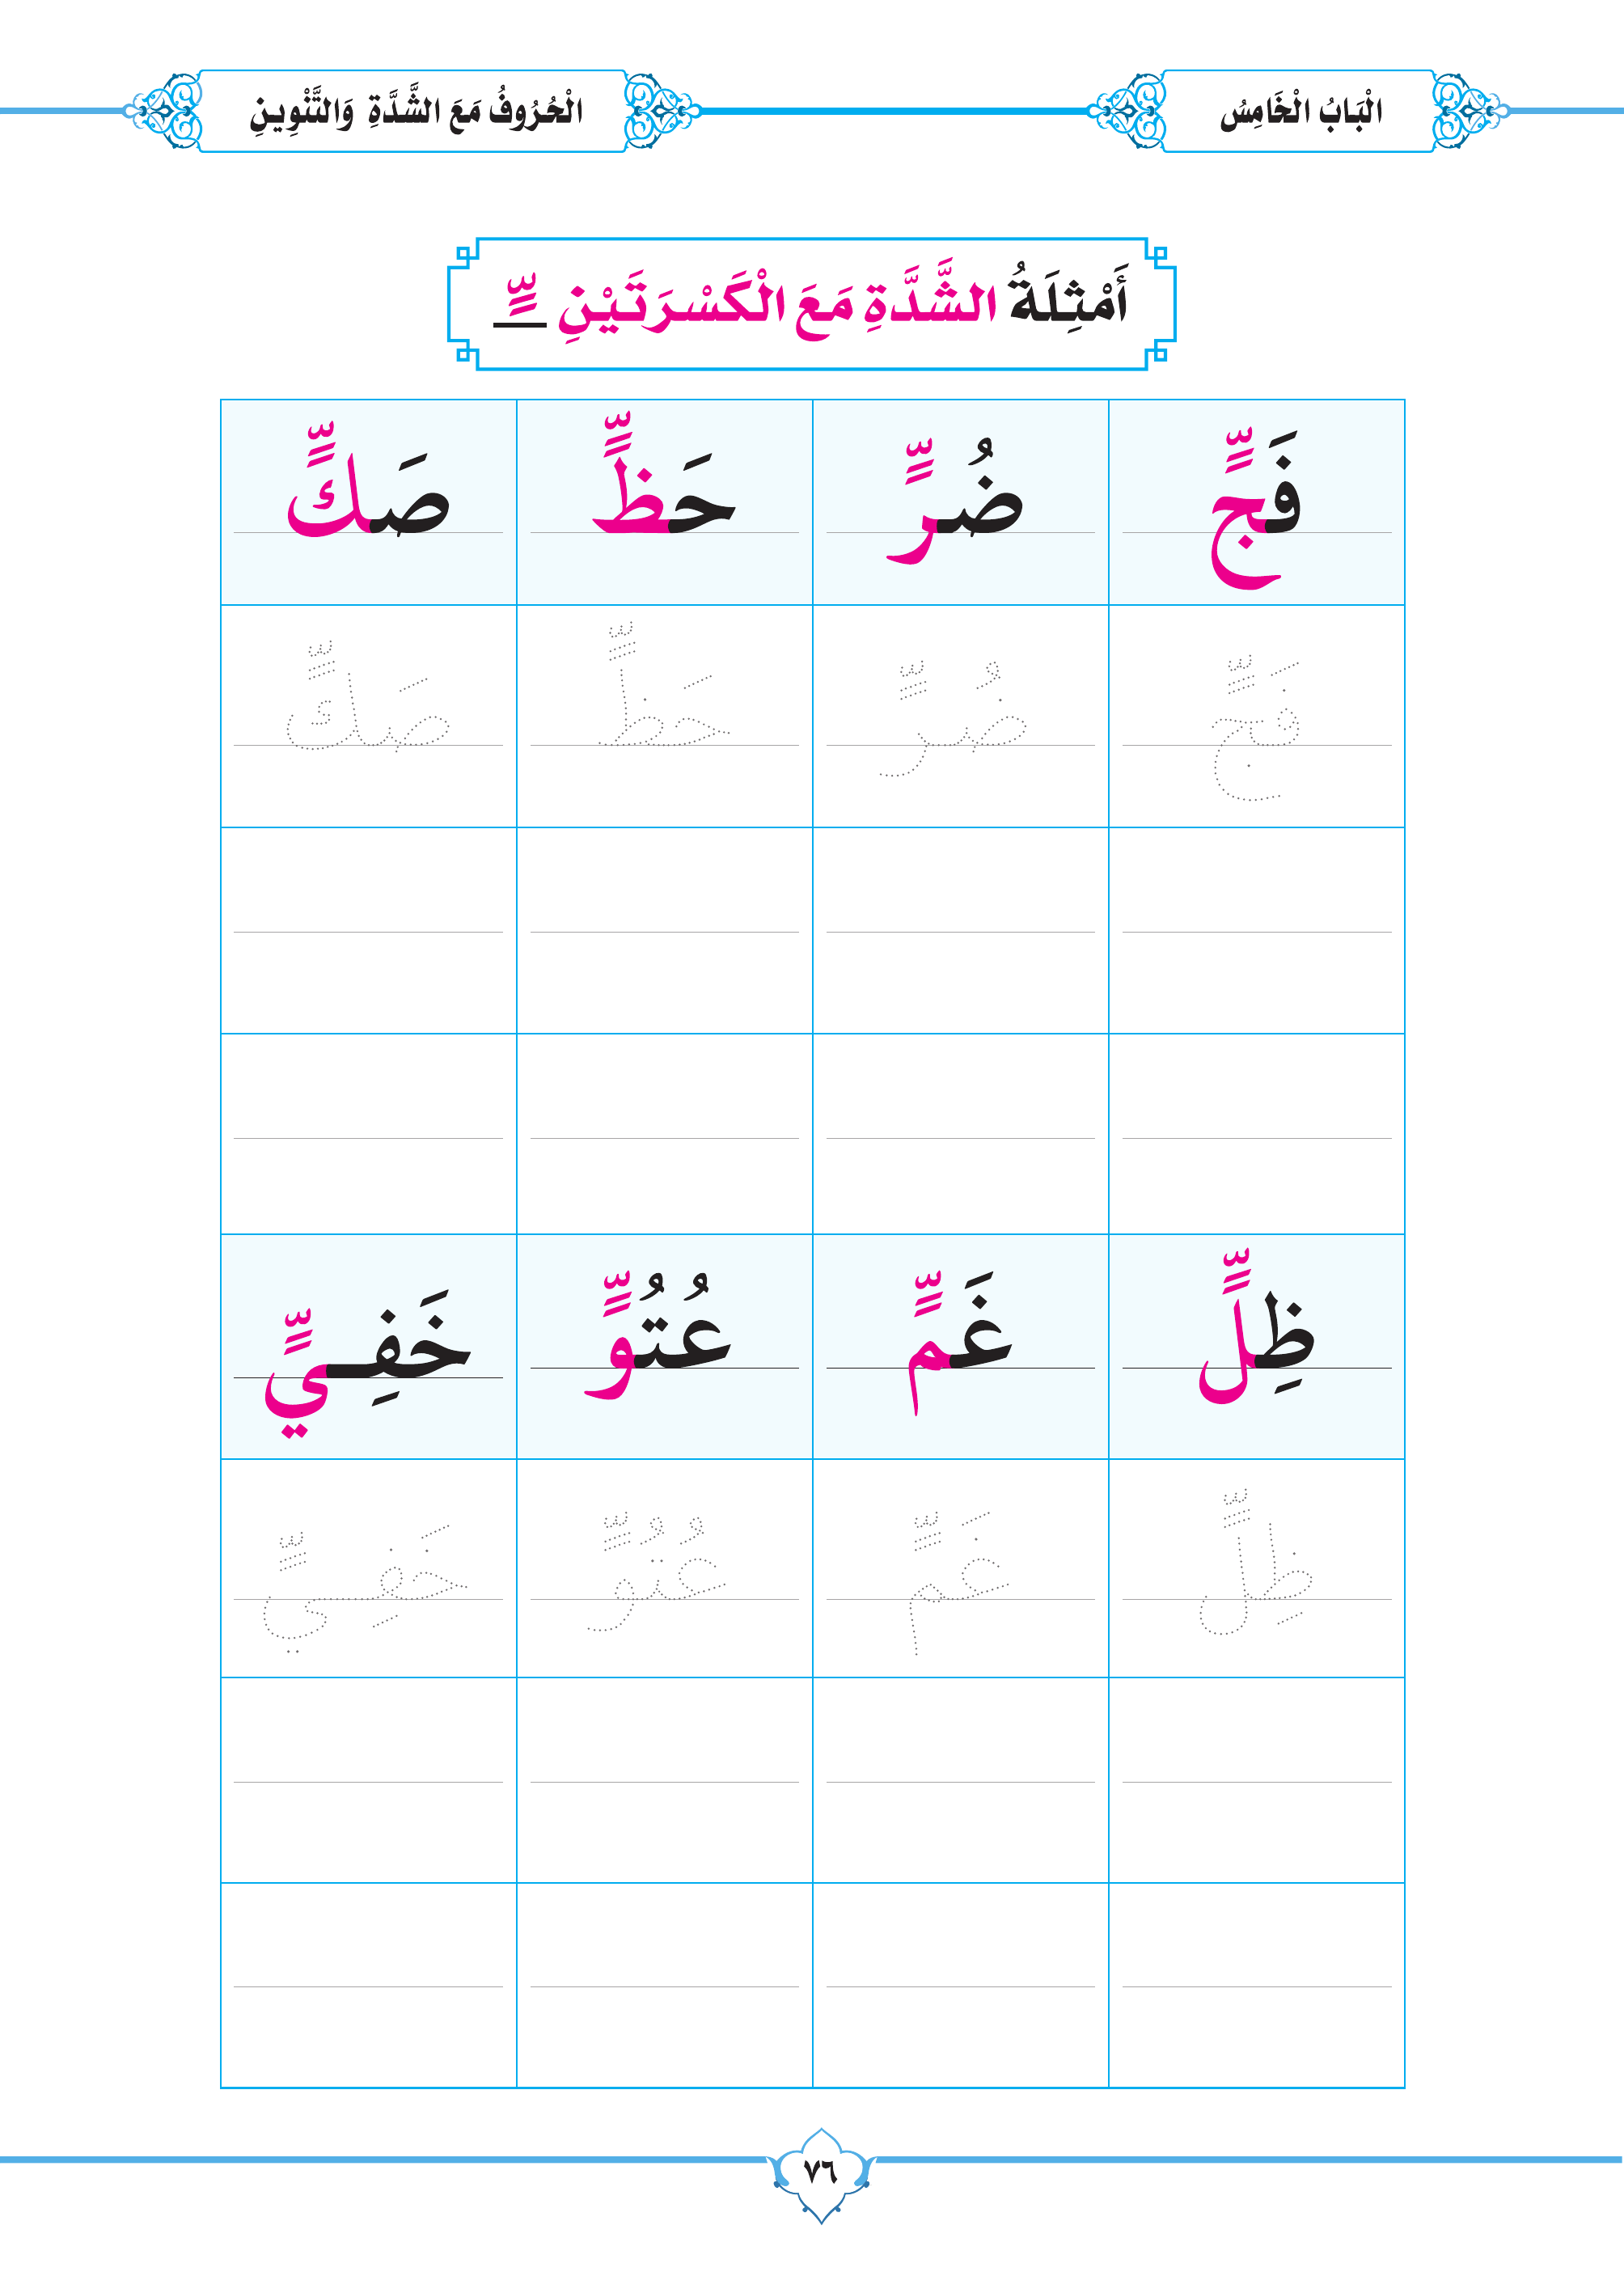 الْبَابُ الْخَامِسُ
الْحُرُوفُ مَعَ الشَّدَّةِ وَالتَّنْوِينِ
أَمْثِلَةُ الشَّدَّةِ مَعَ الْكَسْرَتَيْنِ ـــٍّ
فَجٍّ ضُرٍّ حَظٍّ صَكٍّ
فَجٍّ ضُرٍّ حَظٍّ صَكٍّ
ظِلٍّ غَمٍّ عُتُوٍّ خَفِـيٍّ
ظِلٍّ غَمٍّ عُتُوٍّ خَفِـيٍّ
٧٦